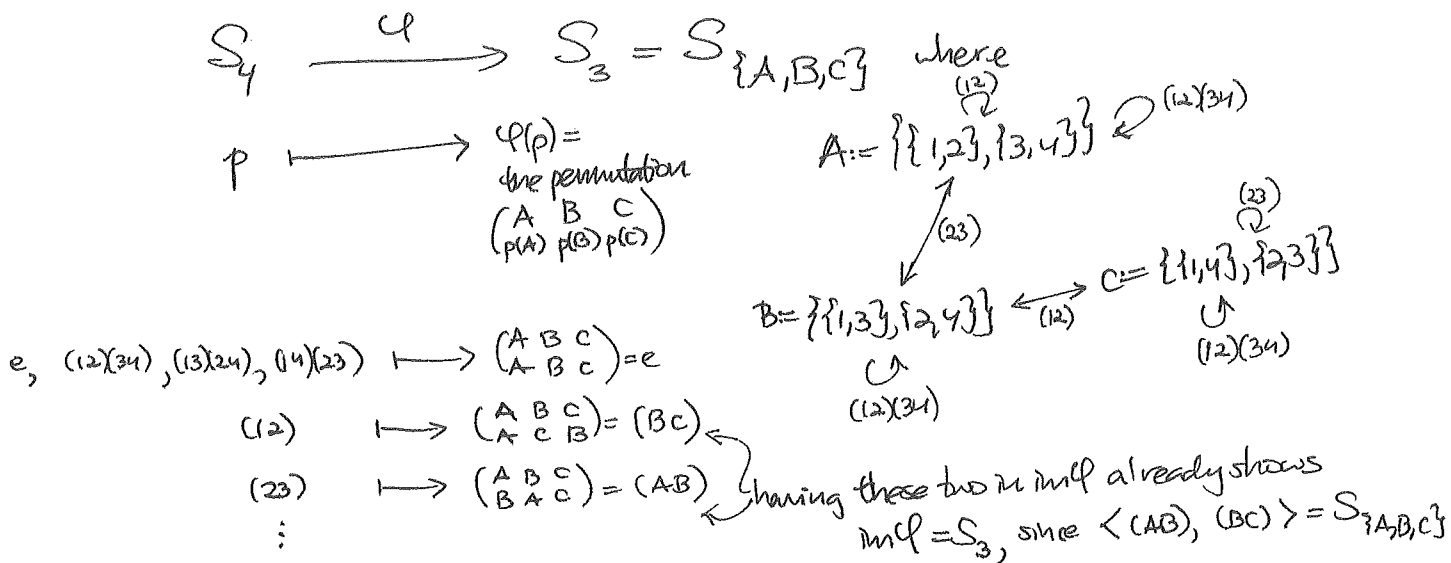 S₄ —φ→ S₃ = S_{A,B,C} where
p ↦ φ(p) =
the permutation
(A B C)
(p(A) p(B) p(C))
(12)
A:= {{1,2},{3,4}} (12)(34)
(23)
(23)
B:= {{1,3},{2,4}} ↔ C:= {{1,4},{2,3}}
(12)
(12)(34)
(12)(34)
e, (12)(34), (13)(24), (14)(23) ↦ (A B C / A B C) = e
(12) ↦ (A B C / A C B) = (BC)
(23) ↦ (A B C / B A C) = (AB)
⋮
having these two in imφ already shows
imφ = S₃, since <(AB), (BC)> = S_{A,B,C}